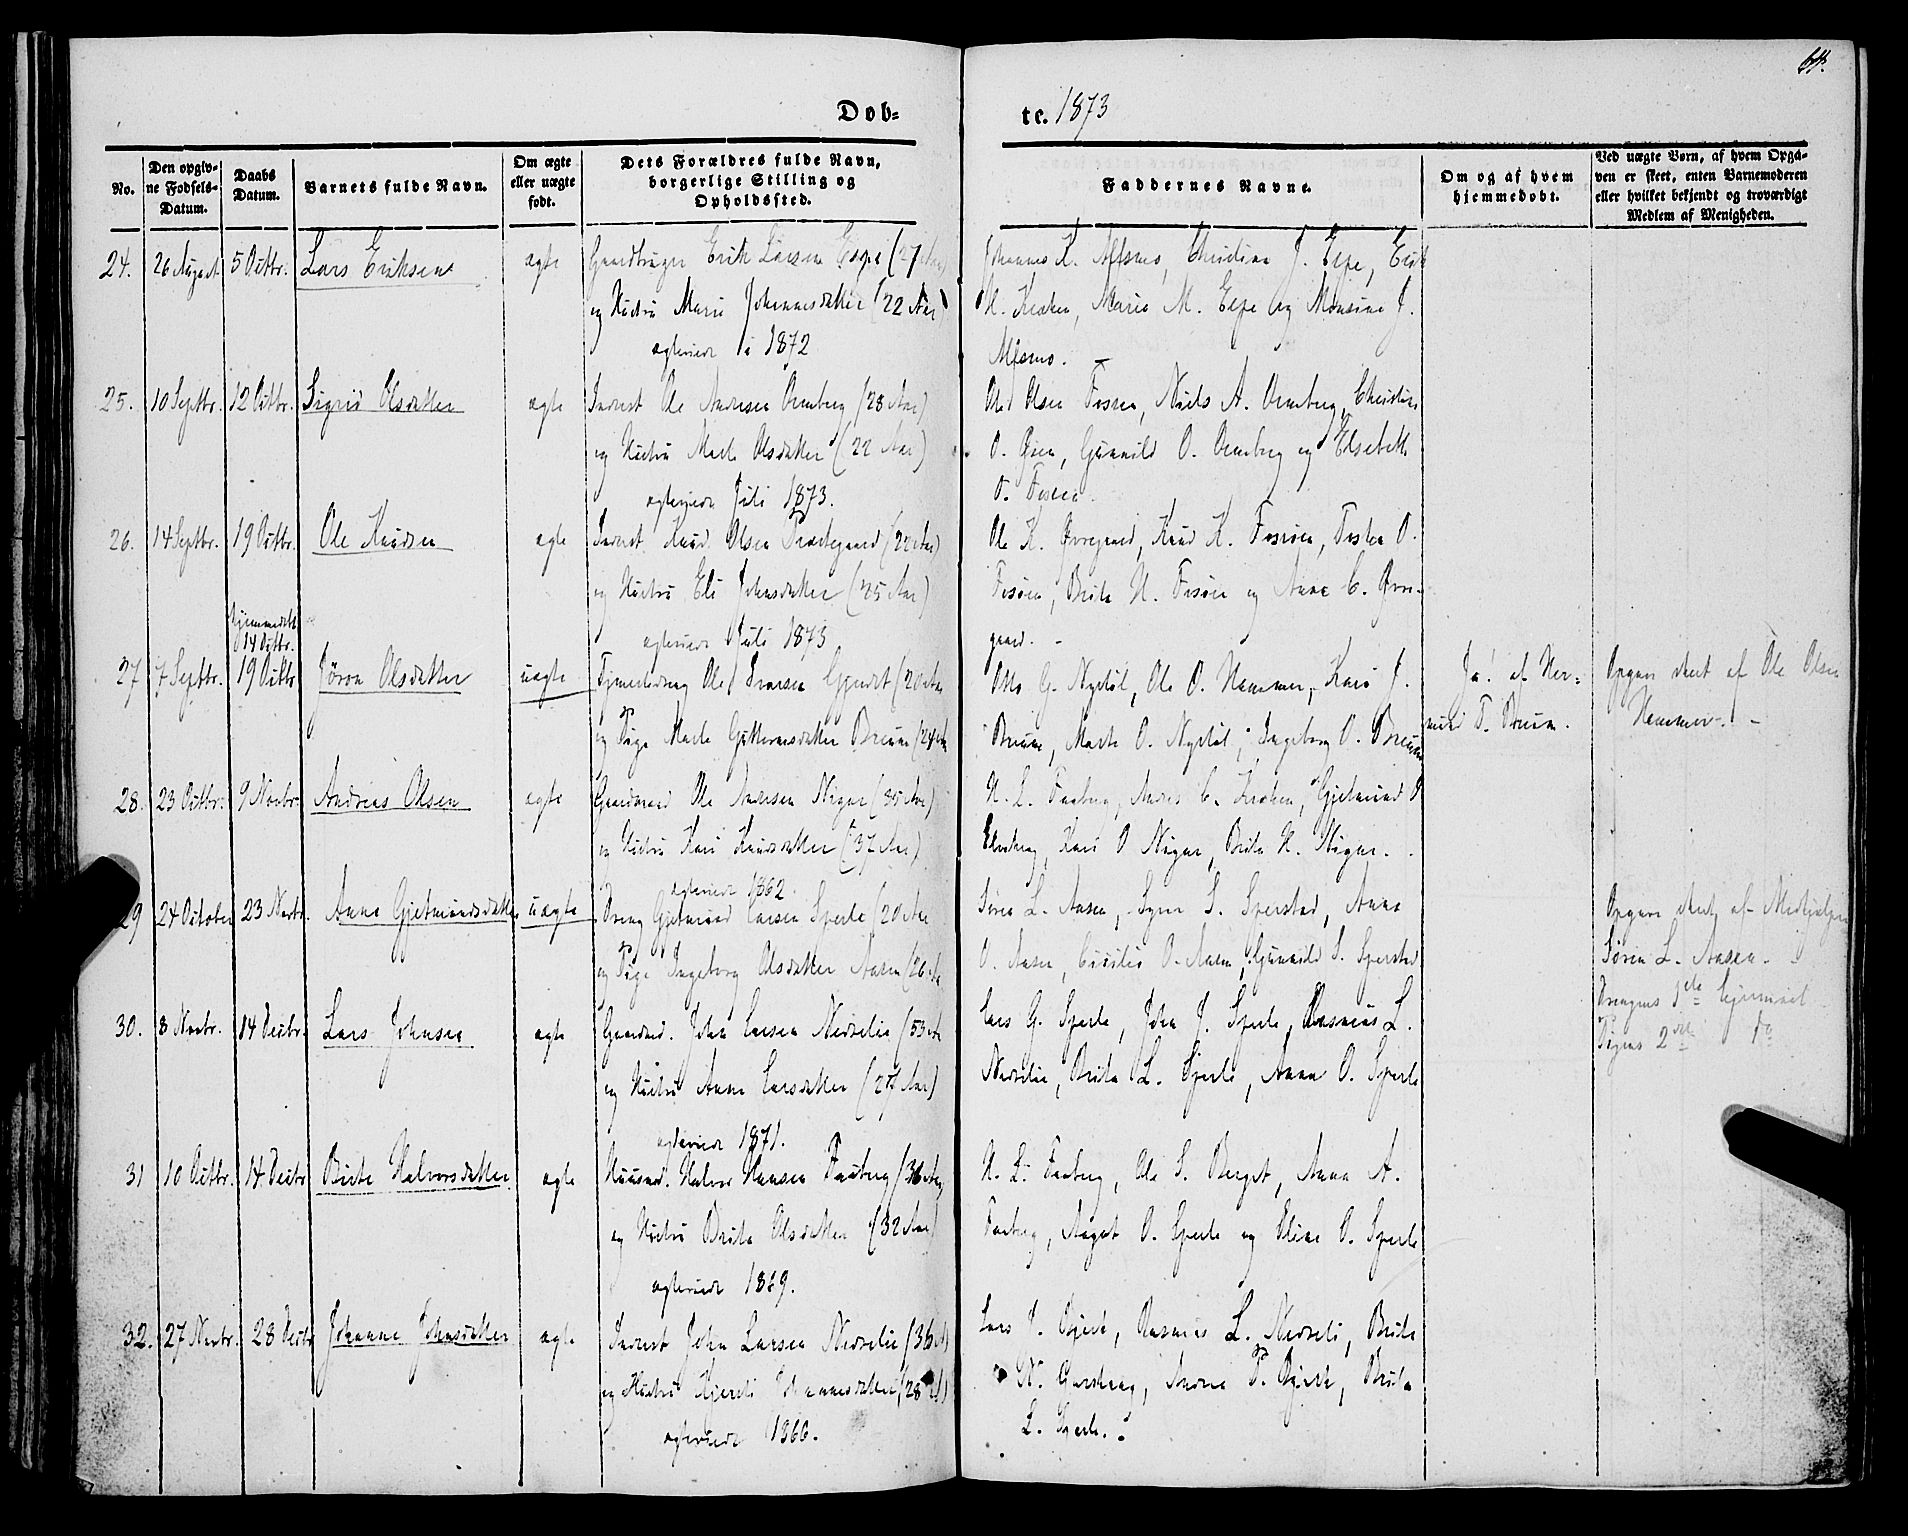 Døb-
te. 1873
No.
Den opgiv-
ne Fødsels-
Datum.
Daabs
Datum.
Barnets fulde Navn.
Om ægte
eller uægte
født.
Dets Forældres fulde Navn,
borgerlige Stilling og
Opholdssted.
Faddernes Navne.
Om og af hvem
hjemmedøbt.
Ved uægte Børn, af hvem Opga-
ven er skeet, enten Barnemoderen
eller hvilket bekjendt og troværdigt
Medlem af Menigheden.
24. 26 August 5 Octbr. Lars Eriksen ægte Gaardbruger Erik Larsen Espe (27 Aar)
og Hustru Mari Johannesdatter (22 Aar)
ægteviede i 1872
Johannes K. Christina J. Espe, Erik
Marie M. Espe og Monsine J.
25. 10 Septbr. 12 Octbr. Sigrid Olsdatter ægte Inderst Ole Andersen (28 Aar)
og Hustru Marte Olsdatter (22 Aar)
ægteviede Juli 1873.
Ole Olsen Niels A. Christine
O. Øien, Gunnild O. og Elsebeth
O.
26. 14 Septbr. 19 Octbr. Ole Knudsen ægte Inderst Knud Olsen (22 Aar)
og Hustru Eli Johnsdatter (25 Aar)
ægteviede Juli 1873
Ole K. Øvregaard, Knud K. O.
Brita H. og Anne C. Øvre-
gaard. -
27 7 Septbr. hjemmedøbt
14 Octbr.
19 Octbr. Jøron Olsdatter uægte Tjenestedreng Ole Gjendt (20 Aar
og Pige Marte Guttormsdatter Bruun (24 Aar
Otto G. Nystøl, Ole O. Hammer, Kari J.
Bruun, Marte O. Nystøl, Ingeborg O. Bruun
Ja! af Her-
mund T. Bruun.
Opgave skeet af Ole Olsen
Hammer. -
28. 23 Octbr. 9 Novbr. Andreas Olsen ægte Gaardmand Ole Andersen Nigar (35 Aar)
og Hustru Kari Knudsdatter (37 Aar)
ægteviede 1862.
H. L. Faaberg, Anders C. Gjetmund
Kari O Nigar, Brita H. Nigar.
29 24 October 23 Novbr. Anna Gjetmundsdatter uægte Dreng Gjetmund Larsen Sperle (20 Aar
og Pige Ingeborg Olsdatter Aasen (26 Aar
Søren L. Aasen, Syver S. Sperstad, Anna
O. Aasen, Cicilie O. Aasen, Gunnild S. Sperstad
Opgave skeet af Medhjælper
Søren L. Aasen.
Drengens 1ste Leiermaal
Pigens 2det do
30. 8 Novbr. 14 Decbr. Lars Johnsen ægte Gaardmd. John Larsen Nedrelie (53 Aar
og Hustru Anna Larsdatter (27 Aar)
ægteviede 1871.
Lars G. Sperle, John J. Sperle, Rasmus L.
Nedrelie, Brita L. Sperle, Anna O. Sperle
31 10 Octbr. 14 Decbr. Birte Halvorsdatter ægte Huusmd. Halvor Hansen Faaberg (36 Aar,
og Hustru Brita Olsdatter (32 Aar)
ægteviede 1869.
H. L. Faaberg, Ole S. Berget, Anna A.
Faaberg, August O. Sperle og Eline O. Sperle
32. 27 Novbr. 28 Decbr Johanne Johnsdatter ægte Inderst John Larsen Nedrelie (36 A)
og Hustru Kjersti Johannesdatter (28 A)
ægteviede 1866.
Lars J. Rasmus L. Nedreli, Brita
N. Brita
L. Sperle.